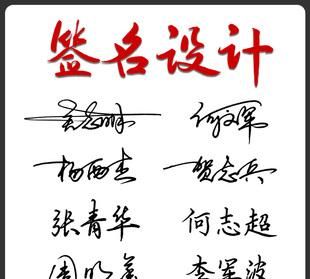 签名设计
何文军
杨西杰 贺志兵
张青华 何志超
李军波